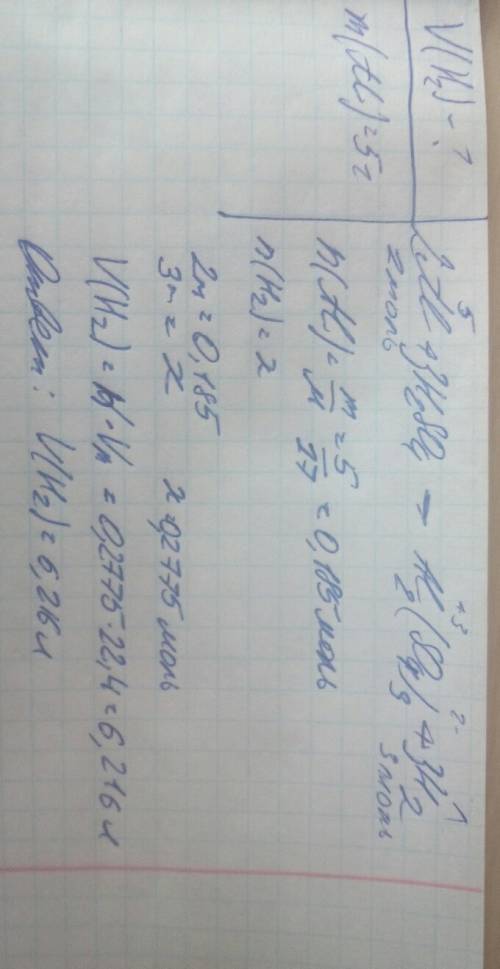 V(H₂) - ?
m(Al) = 5 г
2Al + 3H₂SO₄ → Al₂(SO₄)₃ + 3H₂
2 моль 3 моль
n(Al) = m/M = 5/27 = 0,185 моль
n(H₂) = x
2м = 0,185
3м = x x = 0,2775 моль
V(H₂) = n · Vm = 0,2775 · 22,4 = 6,216 л
Ответ: V(H₂) = 6,216 л